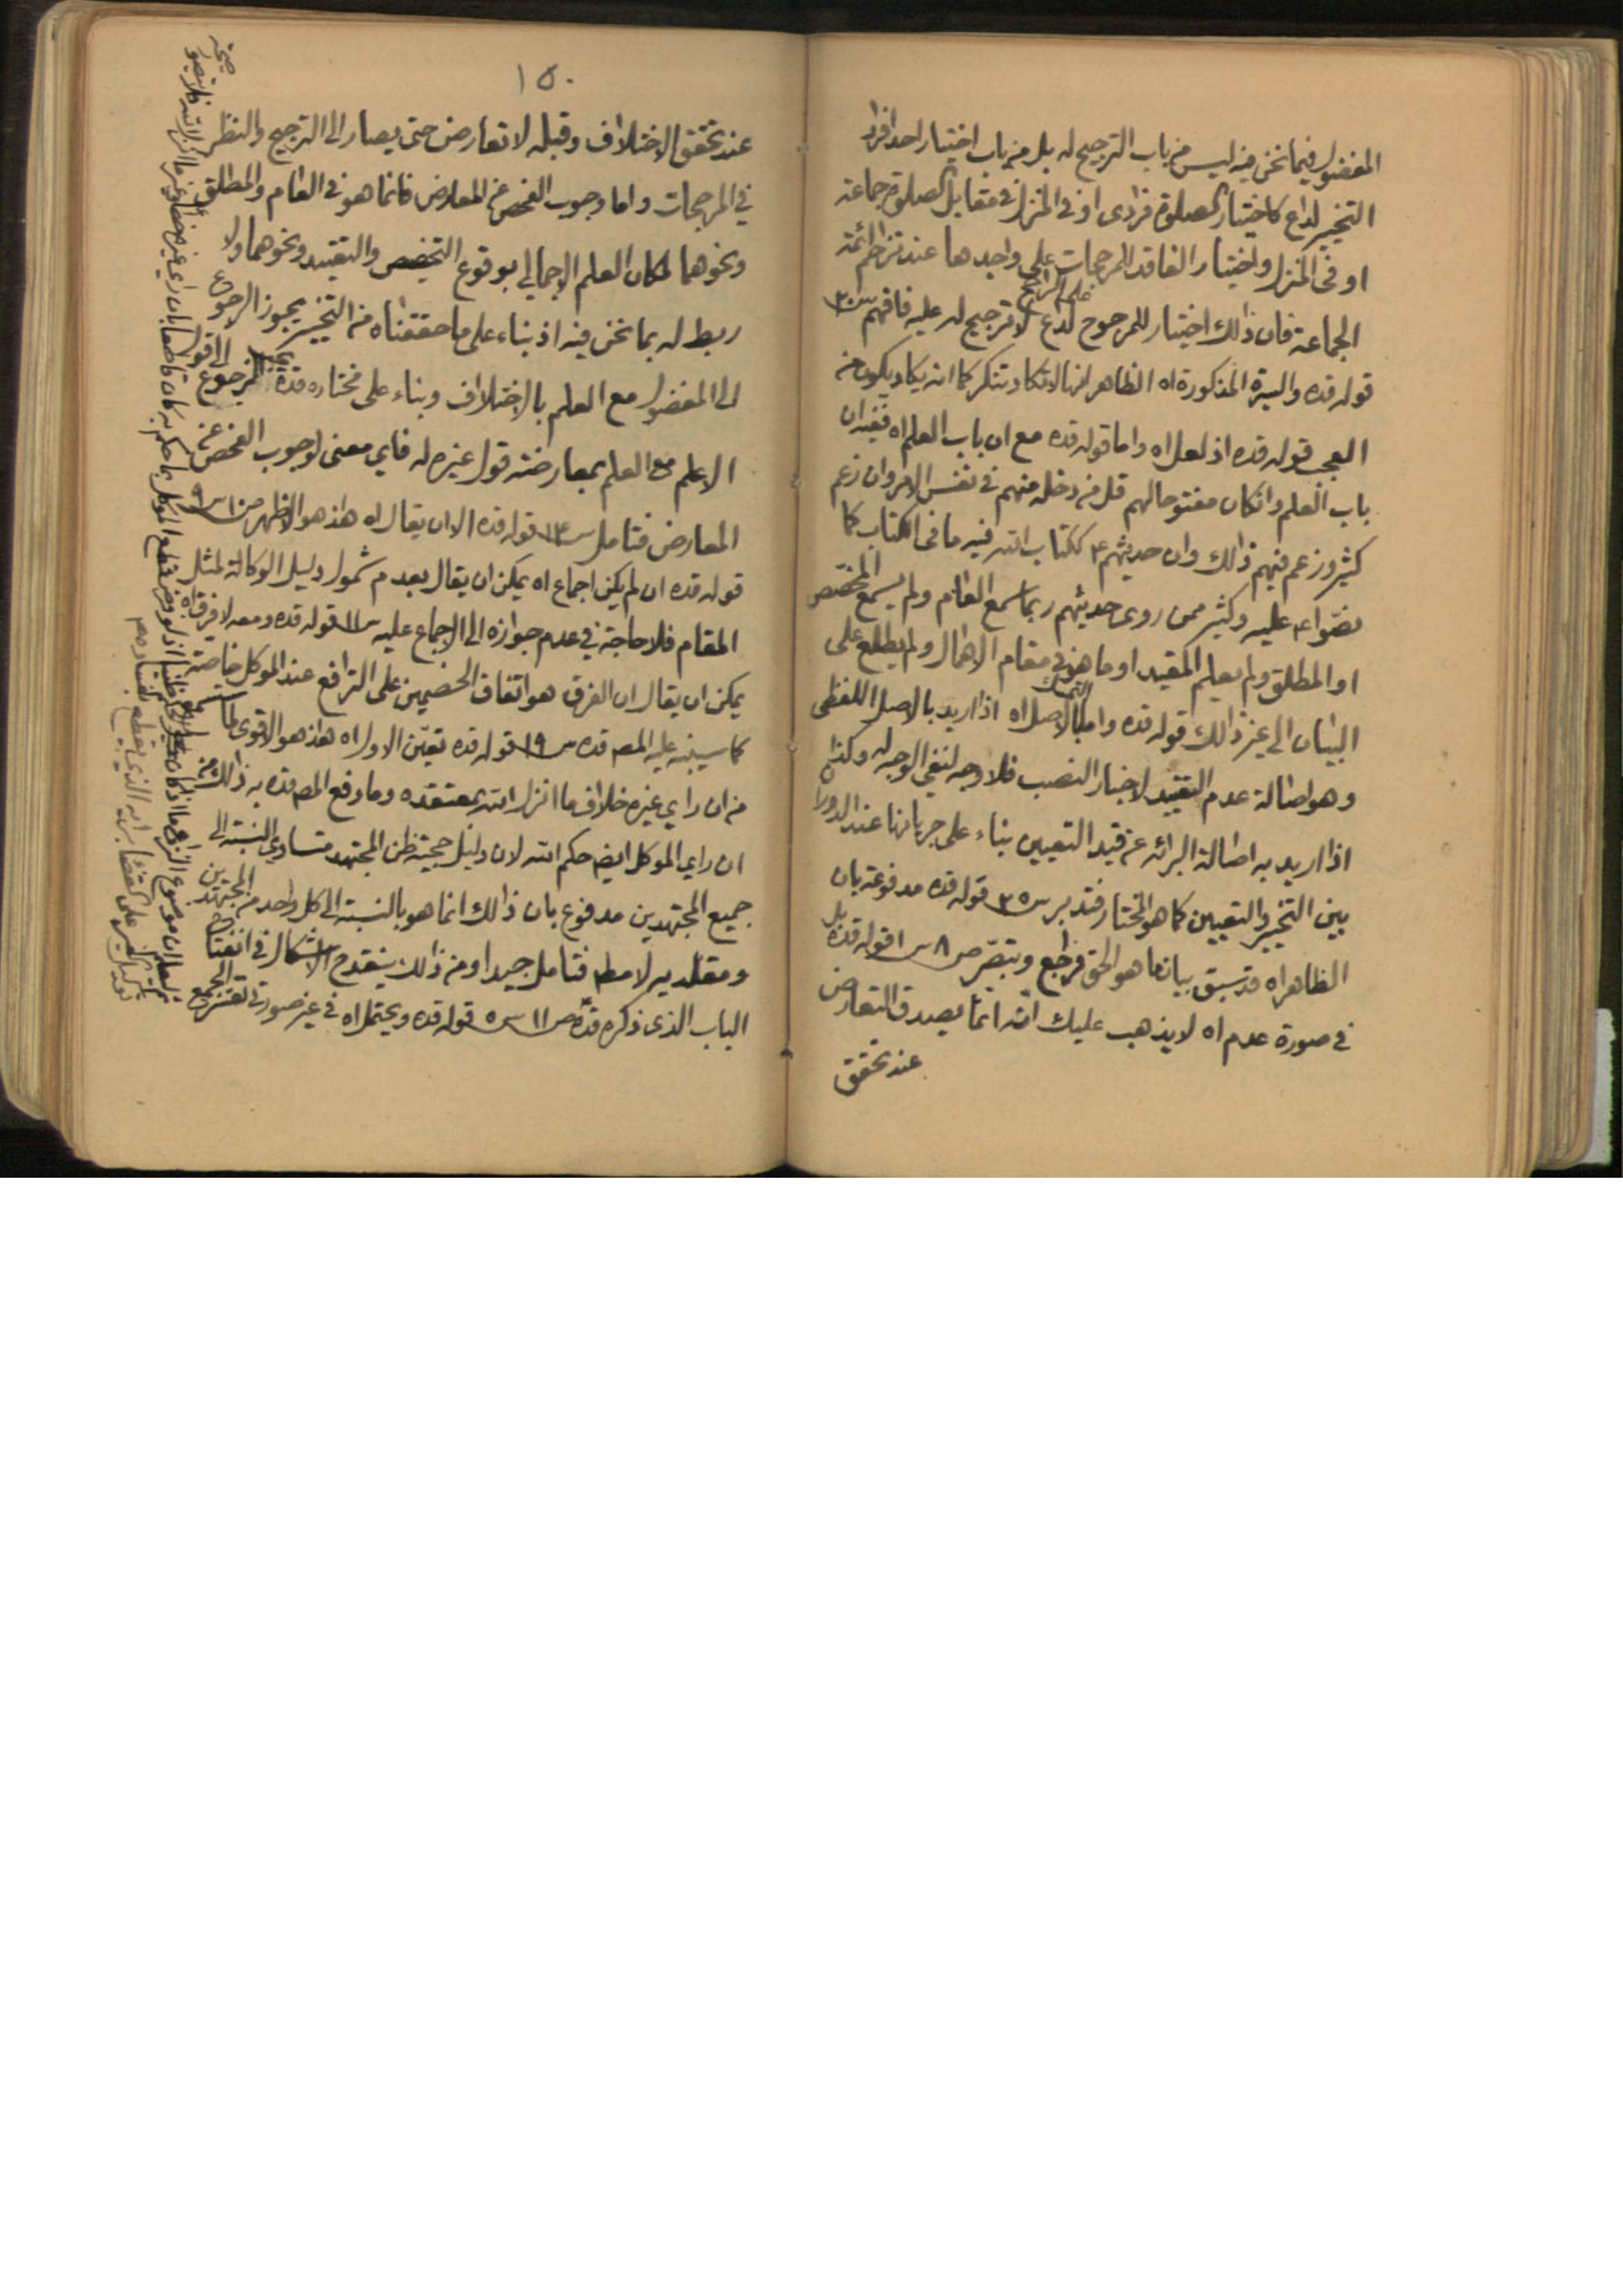 المفضول فيما نحن فيه ليس من باب الترجيح له بل من باب اختيار احد افراد
التخيير لداع كاختيار الصلوة فرادى او في المنزل في مقابل الصلوة جماعة
او في المنزل واختيار الفاقد للمرجحات على واجدها عند تزاحم ائمة
الجماعة فان ذلك اختيار للمرجوح لداع لا ترجيح له عليه فافهم س٣٠
على الراجح
قوله قده والسيرة المذكورة اه الظاهر انها لا تكاد تنكر كما انه يكاد يكون من
العجب قوله قده اذ لعل اه واما قوله قده مع ان باب العلم اه ففيه ان
باب العلم وان كان مفتوحا لهم قل من دخله منهم في نفس الامر وان زعم
كثير وزعم فيهم ذلك وان حديثهم ع ككتاب الله فيه ما في الكتاب كما
نصوا ع عليه وكثير ممن روى حديثهم ربما سمع العام ولم يسمع المخصص
او المطلق ولم يعلم المقيد او ما هو في مقام الاهمال ولم يطلع على
البيان الى غير ذلك قوله قده واما التمسك بالاصل اه اذا اريد بالاصل اللفظي
وهو اصالة عدم التقييد لاخبار النصب فلا وجه لنفي الوجه له وكذا
اذا اريد به اصالة البرائة عن قيد التعيين بناء على جريانها عند الدوران
بين التخيير والتعيين كما هو المختار فتدبر س٣٥ قوله قده مدفوعة بان
الظاهر اه قد سبق بيان ما هو الحق فراجع وتبصر ص٨ س١ قوله قده بل
في صورة عدم اه لا يذهب عليك انه انما يصدق التعارض
عند تحقق
١٥٠
عند تحقق الاختلاف وقبله لا تعارض حتى يصار الى الترجيح والنظر
في المرجحات واما وجوب الفحص عن المعارض فانما هو في العام والمطلق
ونحوهما لمكان العلم الاجمالي بوقوع التخصيص والتقييد ونحوهما ولا
ربط له بما نحن فيه اذ بناء على ما حققناه من التخيير يجوز الرجوع
الى المفضول مع العلم بالاختلاف وبناء على مختاره قده يجب الرجوع الى قول
الاعلم مع العلم بمعارضته قول غيره له فاي معنى لوجوب الفحص عن
المعارض فتامل س١٣ قوله قده الا ان يقال اه هذا هو الاظهر ص١٠ س٩
قوله قده ان لم يكن اجماع اه يمكن ان يقال بعدم شمول دليل الوكالة لمثل
المقام فلا حاجة في عدم جوازه الى الاجماع عليه س١١ قوله قده ومعه لا فرق اه
يمكن ان يقال ان الفرق هو اتفاق الخصمين على الترافع عند الموكل خاصة
كما سينبه عليه المصـ قده س١٩ قوله قده تعين الاول اه هذا هو الاقوى لما
من ان راي غيره خلاف ما انزل الله بمعتقده وما دفع المصـ قده به ذلك من
ان راي الموكل ايضـ حكم الله لان دليل حجية ظن المجتهد متساوي النسبة الى
جميع المجتهدين مدفوع بان ذلك انما هو بالنسبة الى كل واحد من المجتهدين
ومقلديه لا مطـ فتامل جيدا ومن ذلك ينقدح الاشكال في انفتاح
الباب الذي ذكره قده ص١١ س٥ قوله قده ويحتمل اه في غير صورتي تعسر الجمع